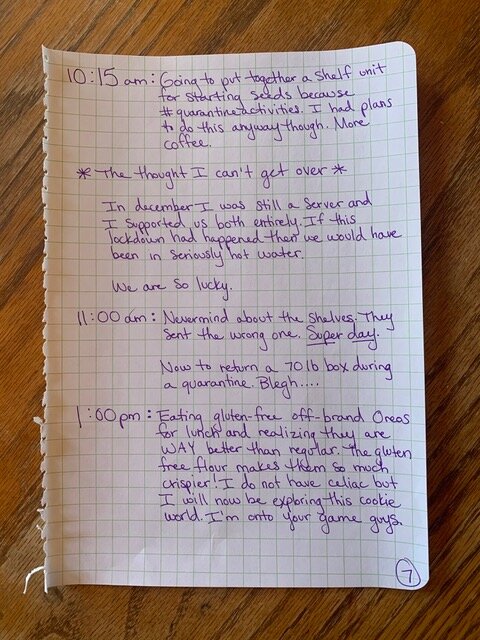 10:15 am: Going to put together a shelf unit
for starting seeds because
#quarantineactivities. I had plans
to do this anyway though. More
coffee.
* The thought I can't get over *
In december I was still a server and
I supported us both entirely. If this
lockdown had happened then we would have
been in seriously hot water.
We are so lucky.
11:00 am: Nevermind about the shelves. They
sent the wrong one. Super day.
Now to return a 70 lb box during
a quarantine. Blegh....
1:00 pm: Eating gluten-free off-brand Oreos
for lunch and realizing they are
WAY better than regular. The gluten
free flour makes them so much
crispier! I do not have celiac but
I will now be exploring this cookie
world. I'm onto your game guys.
7